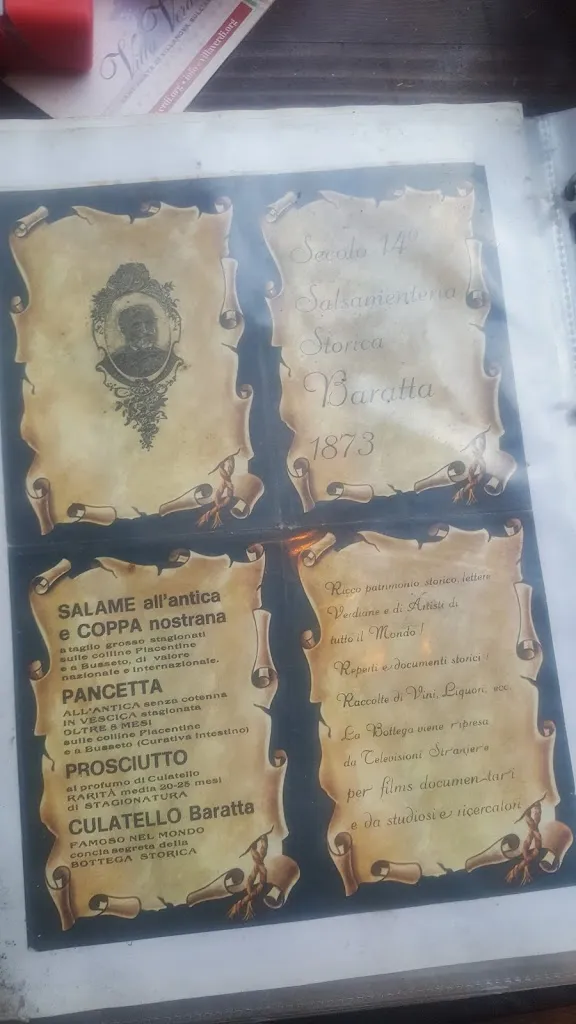 Villa Verdi
info@villaverdi.org
Secolo 14º
Salsamenteria
Storica
Baratta
1873
SALAME all'antica
e COPPA nostrana
a taglio grosso stagionati
sulle colline Piacentine
e a Busseto, di valore
nazionale e internazionale.
PANCETTA
ALL'ANTICA senza cotenna
IN VESCICA stagionata
OLTRE 8 MESI
sulle colline Piacentine
e a Busseto (Curativa intestino)
PROSCIUTTO
al profumo di Culatello
RARITÀ media 20-25 mesi
di STAGIONATURA
CULATELLO Baratta
FAMOSO NEL MONDO
concia segreta della
BOTTEGA STORICA
Ricco patrimonio storico, lettere
Verdiane e di Artisti di
tutto il Mondo!
Reperti e documenti storici!
Raccolte di Vini, Liquori, ecc.
La Bottega viene ripresa
da Televisioni Straniere
per films documentari
e da studiosi e ricercatori